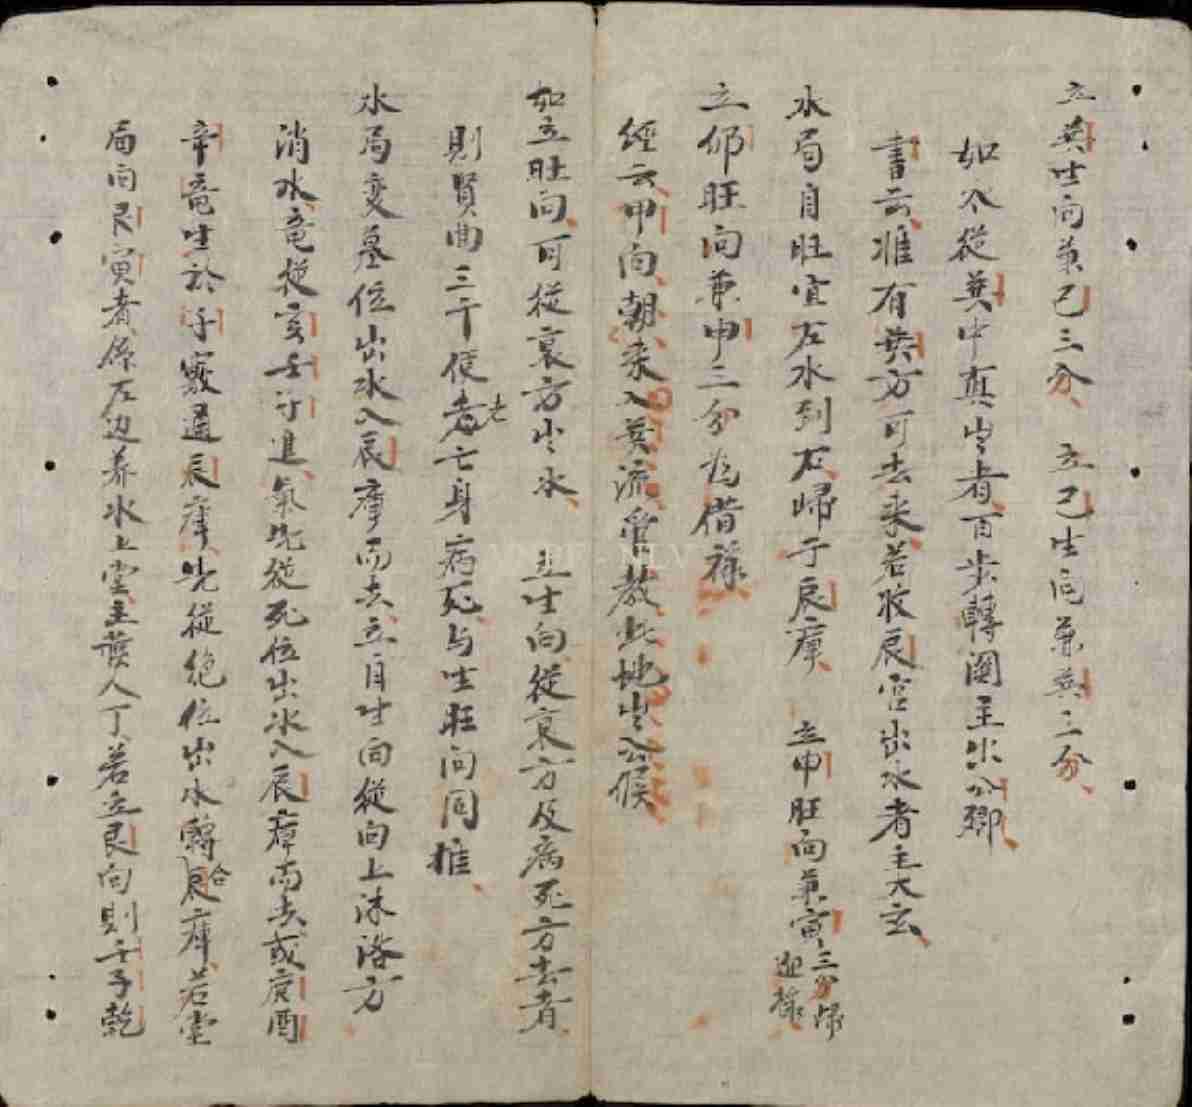 立巽生向兼巳三分、立巳生向兼巽三分、
如不從巽中真出者百步轉闌主出公卿、
書云惟有巽方可去來若收辰宮出水者主大玄、
水局自旺宜左水到右歸于辰庫、立申旺向兼寅三分歸迎祿
立卯旺向兼申三分為借祿
經云甲向朝來入巽流管教此地出公侯
如立旺向、可從衰方出水、立生向從衰方及病死方去者、
則賢曲三干便老亡身病死与生旺向同推、
水局变墓位出水入辰庫而去、立自生向從向上沐浴方
消水竜從亥壬子進氣先從死位出水入辰庫而去或庚酉
辛竜生於子敷過辰庫先從絶位出水歸合辰庫若堂
局向艮寅者係左边养水上堂主護人丁若立艮向則壬子乾